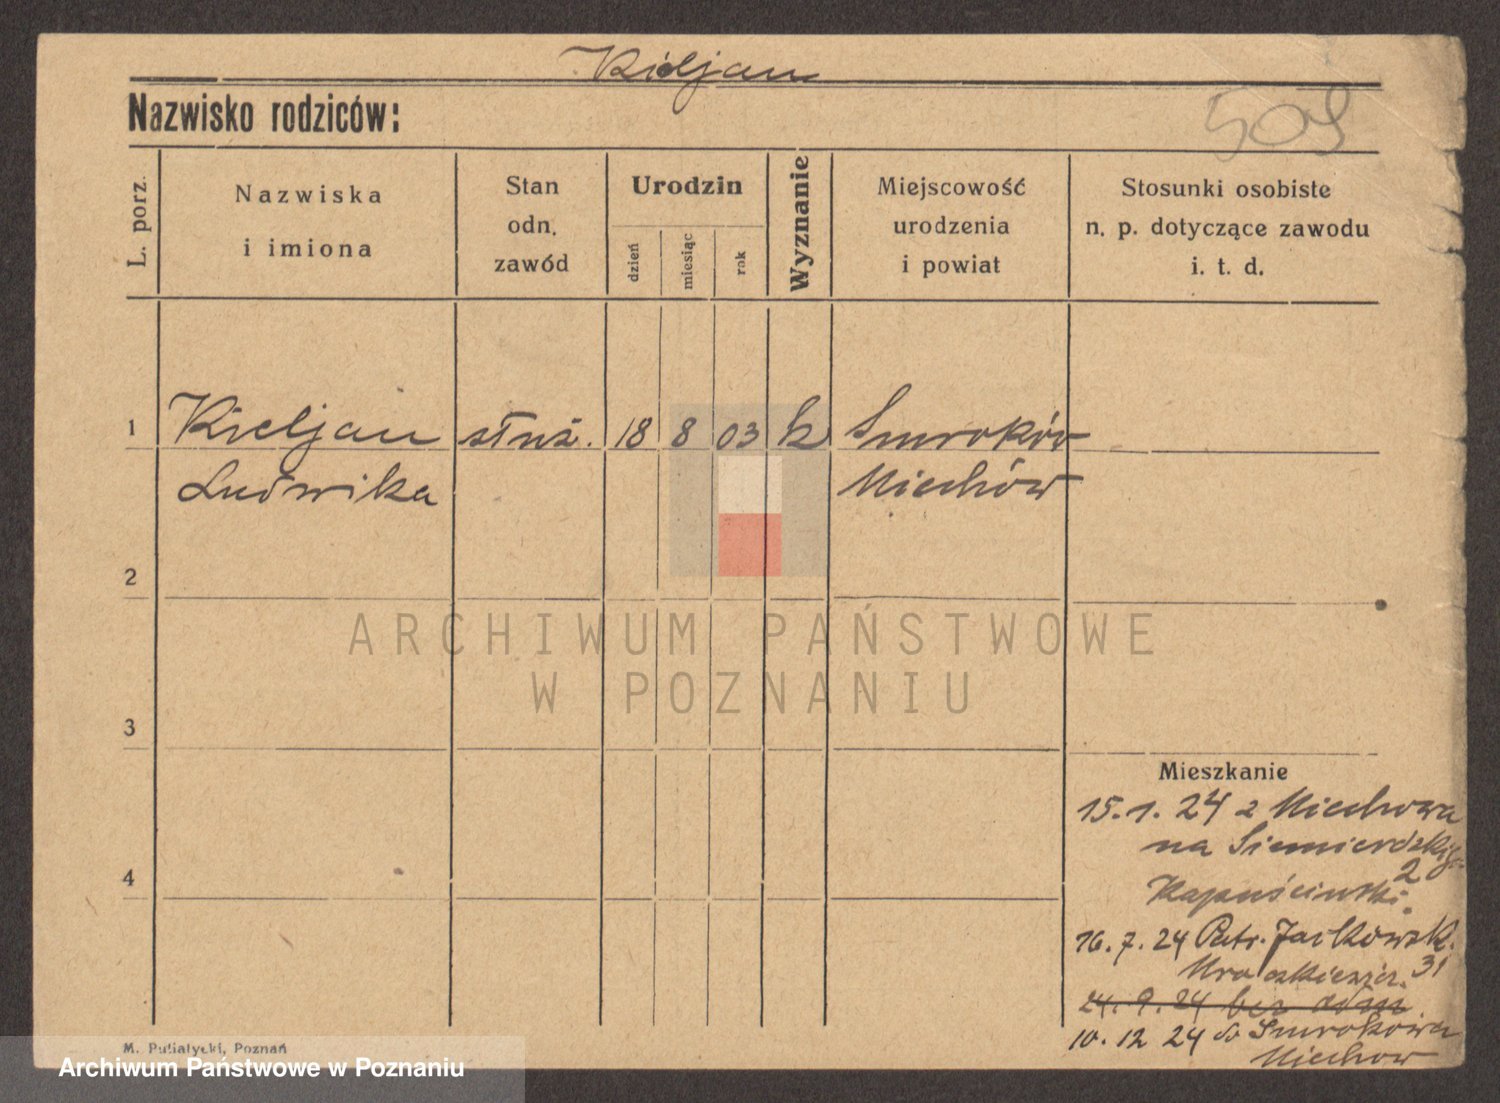 Kieljan
Nazwisko rodziców:
509
L. porz.
Nazwiska
i imiona
Stan
odn.
zawód
Urodzin
dzień
miesiąc
rok
Wyznanie
Miejscowość
urodzenia
i powiat
Stosunki osobiste
n. p. dotyczące zawodu
i. t. d.
1 Kieljan służ. 18 8 03 k Smroków
Ludwika Miechów
2
3
4
ARCHIWUM PAŃSTWOWE
W POZNANIU
Mieszkanie
15.1.24 z Miechowa
na Siemieradzkiego
2
Kapuściński.
16.7.24 Patr. Jackowsk.
31
24.9.24 bez odm
10.12 24 do Smrokowa
Miechow
M. Pusiatycki, Poznań
Archiwum Państwowe w Poznaniu